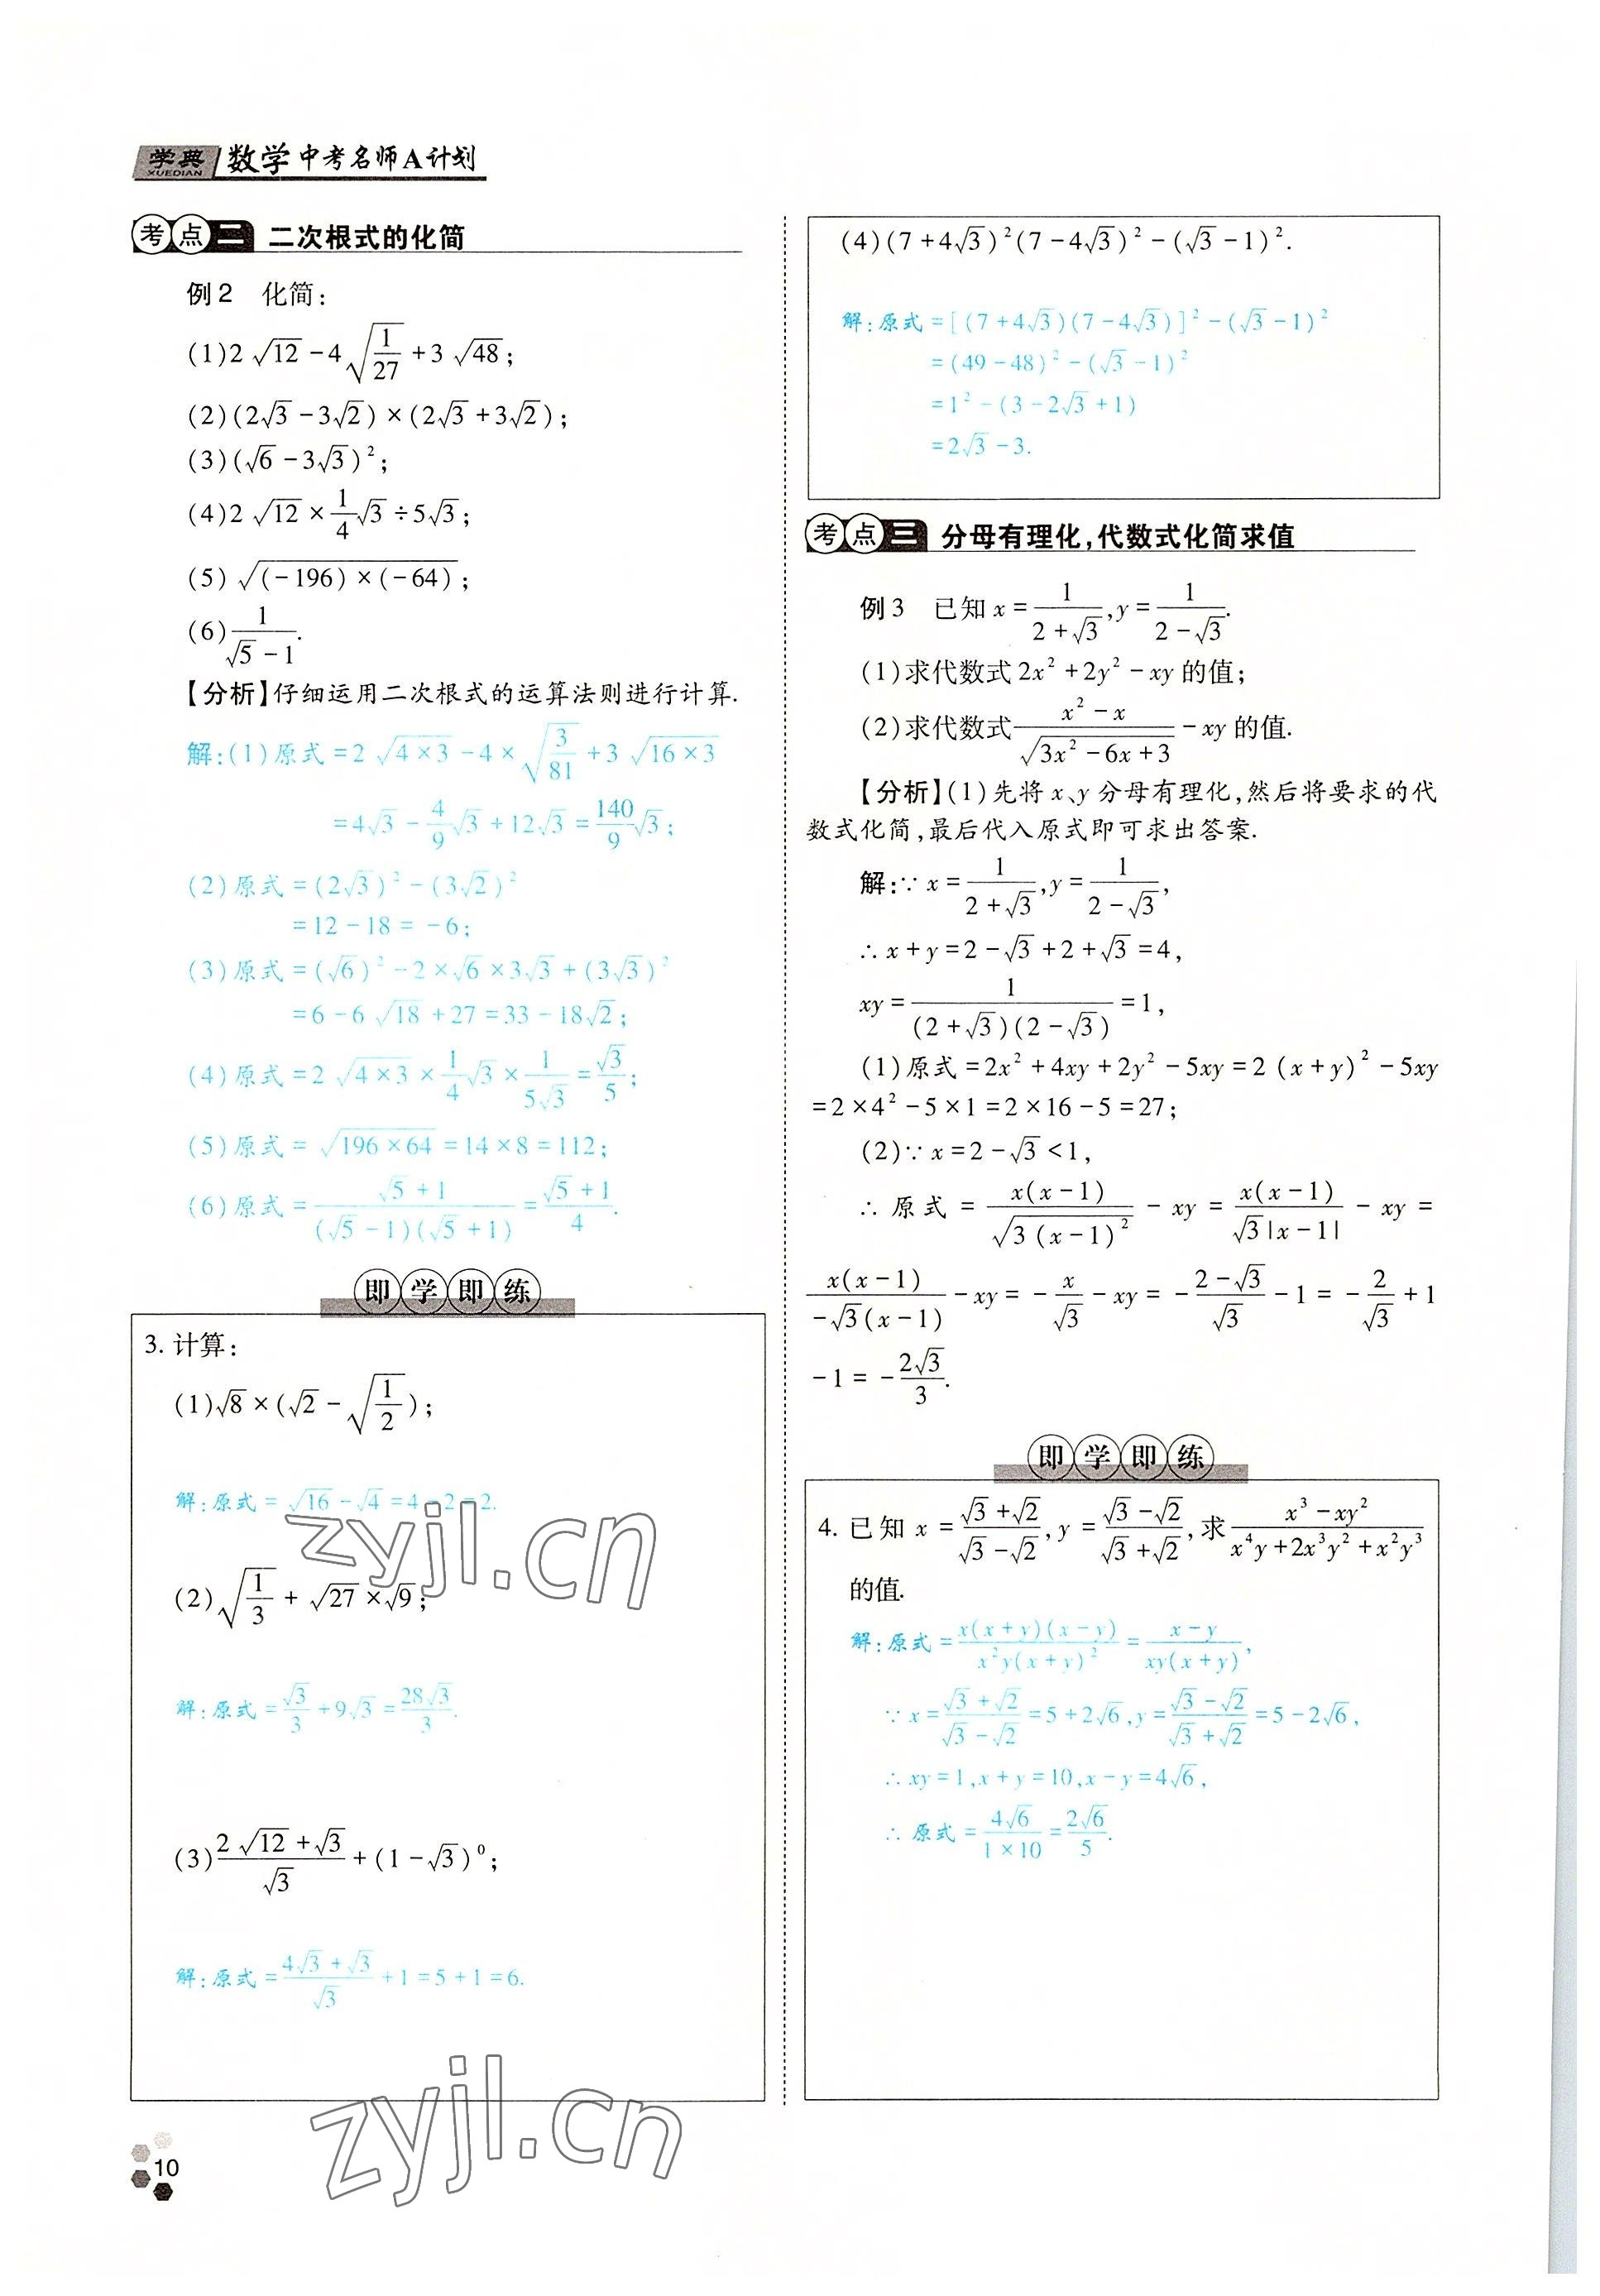 学典 XUEDIAN 数学中考名师A计划
考点二 二次根式的化简
例2 化简:
(1)2√12-4√(1/27)+3√48;
(2)(2√3-3√2)×(2√3+3√2);
(3)(√6-3√3)²;
(4)2√12×1/4√3÷5√3;
(5)√((-196)×(-64));
(6)1/(√5-1).
【分析】仔细运用二次根式的运算法则进行计算.
解:(1)原式=2√(4×3)-4×√(3/81)+3√(16×3)
=4√3-4/9√3+12√3=140/9√3;
(2)原式=(2√3)²-(3√2)²
=12-18=-6;
(3)原式=(√6)²-2×√6×3√3+(3√3)²
=6-6√18+27=33-18√2;
(4)原式=2√(4×3)×1/4√3×1/(5√3)=√3/5;
(5)原式=√(196×64)=14×8=112;
(6)原式=(√5+1)/((√5-1)(√5+1))=(√5+1)/4.
即学即练
3. 计算:
(1)√8×(√2-√(1/2));
解:原式=√16-√4=4-2=2.
(2)√(1/3)+√27×√9;
解:原式=√3/3+9√3=28√3/3.
(3)(2√12+√3)/√3+(1-√3)⁰;
解:原式=(4√3+√3)/√3+1=5+1=6.
(4)(7+4√3)²(7-4√3)²-(√3-1)².
解:原式=[(7+4√3)(7-4√3)]²-(√3-1)²
=(49-48)²-(√3-1)²
=1²-(3-2√3+1)
=2√3-3.
考点三 分母有理化,代数式化简求值
例3 已知x=1/(2+√3),y=1/(2-√3).
(1)求代数式2x²+2y²-xy的值;
(2)求代数式(x²-x)/√(3x²-6x+3)-xy的值.
【分析】(1)先将x、y分母有理化,然后将要求的代
数式化简,最后代入原式即可求出答案.
解:∵x=1/(2+√3),y=1/(2-√3),
∴x+y=2-√3+2+√3=4,
xy=1/((2+√3)(2-√3))=1,
(1)原式=2x²+4xy+2y²-5xy=2(x+y)²-5xy
=2×4²-5×1=2×16-5=27;
(2)∵x=2-√3<1,
∴原式=x(x-1)/√(3(x-1)²)-xy=x(x-1)/(√3|x-1|)-xy=
x(x-1)/(-√3(x-1))-xy=-x/√3-xy=-(2-√3)/√3-1=-2/√3+1
-1=-2√3/3.
即学即练
4. 已知x=(√3+√2)/(√3-√2),y=(√3-√2)/(√3+√2),求(x³-xy²)/(x⁴y+2x³y²+x²y³)
的值.
解:原式=x(x+y)(x-y)/(x²y(x+y)²)=(x-y)/(xy(x+y)),
∵x=(√3+√2)/(√3-√2)=5+2√6,y=(√3-√2)/(√3+√2)=5-2√6,
∴xy=1,x+y=10,x-y=4√6,
∴原式=4√6/(1×10)=2√6/5.
zyjl.cn
zyjl.cn
10